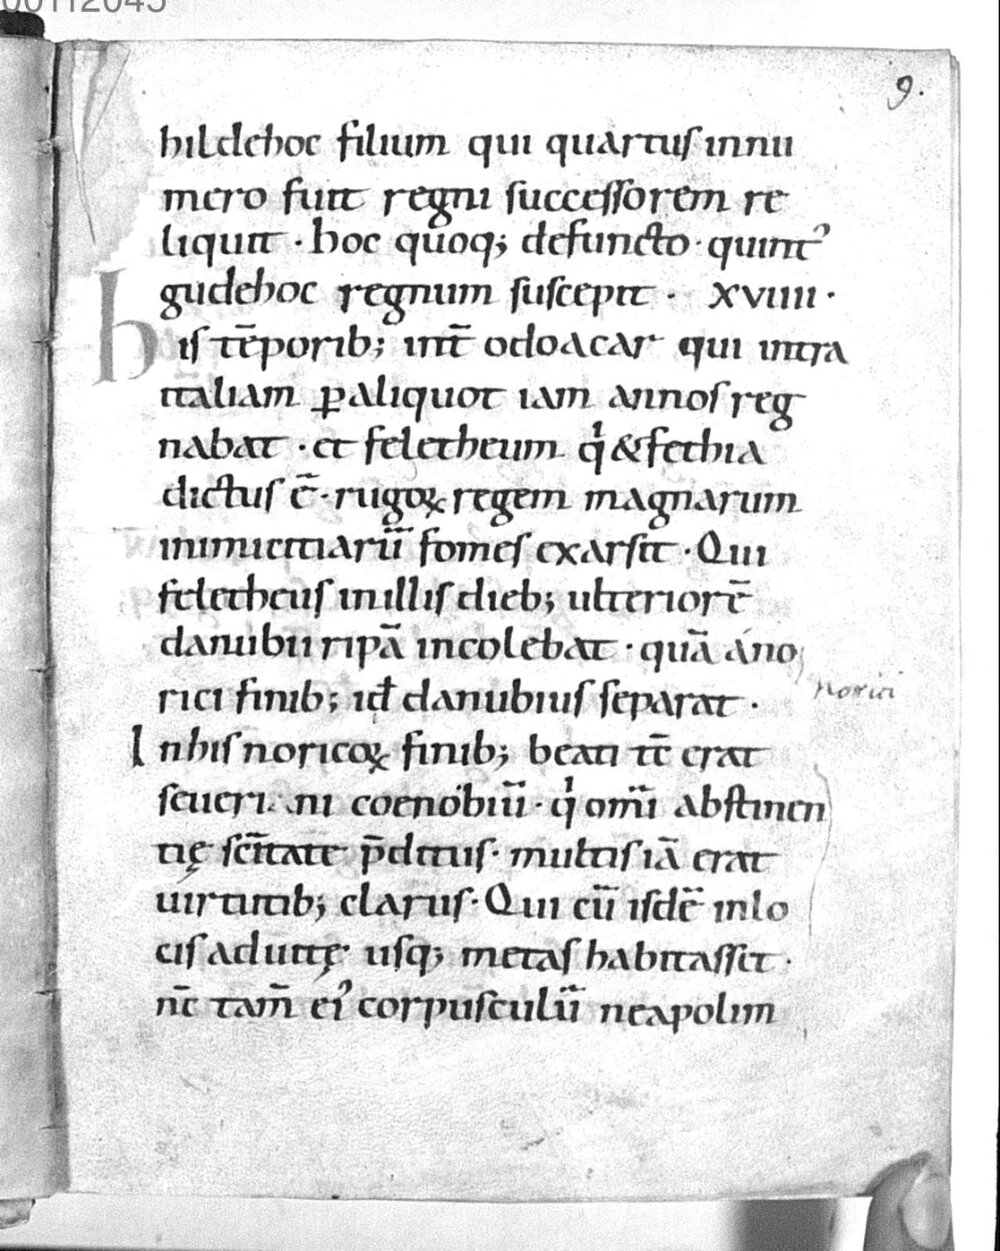 9.
hildehoc filium qui quartuſ innu
mero fuit regni ſucceſſorem re
liquit · hoc quoq; defuncto · quint᾽
gudehoc regnum ſuſcepit · xviiii ·
hiſ tēporib; int̄ odoacar qui intra
italiam ꝑ aliquot iam annoſ reg
nabat · et feletheum qͥ & fethia
dictuſ ē · rugoꝝ regem magnarum
inimicitiarū fomeſ exarſit · Qui
feletheuſ in illiſ dieb; ulteriorē
danubii ripā incolebat · quā a no
norici
rici finib; id danubiuſ ſeparat ·
In hiſ noricoꝝ finib; beati tc̄ erat
ſeueri ni coenobiū · qͥ omī abſtinen
tię ſcītate p̄dituſ · multiſ iā erat
uirtutib; claruſ · Qui cū iſdē in lo
ciſ ad uitę uſq; metaſ habitaſſit ·
nc̄ tam̄ ei᾽ corpuſculū neapolim